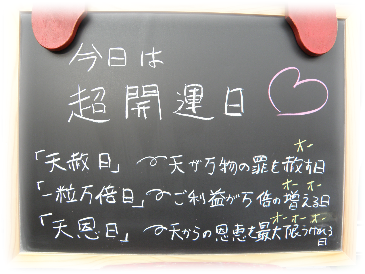 今日は
超開運日
オー
「天赦日」〜天が万物の罪も赦す日
オー オー
「一粒万倍日」〜ご利益が万倍の増える日
オー オー オー
「天恩日」〜天からの恩恵を最大限うけれる
日